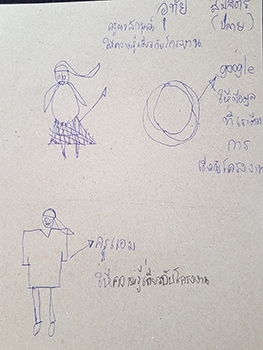 อุทัย สมิตร
(ปลาย)
ให้ความรู้เกี่ยวกับโครงงาน
google
ให้ข้อมูล
ที่เรา
การ
โครงงาน
ครูแอม
ให้ความรู้เกี่ยวกับโครงงาน